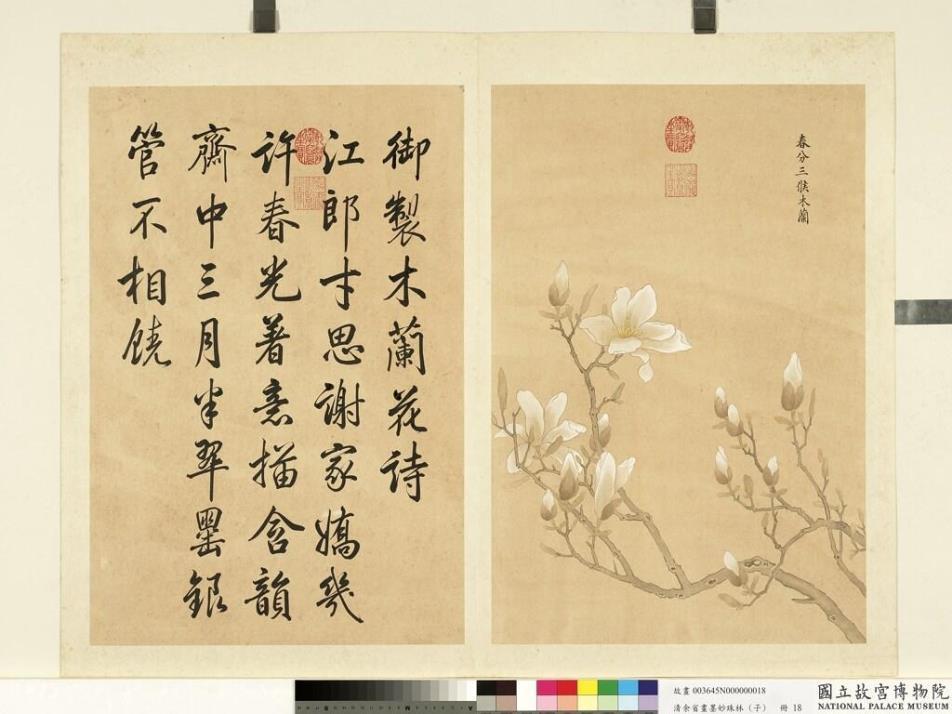 春分三候木蘭
御製木蘭花詩
江郎才思謝家嬌幾
許春光著意描含韻
齋中三月半翠墨銀
管不相饒
故畫 003645N000000018
清余省畫墨妙珠林（子） 冊 18
國立故宮博物院
NATIONAL PALACE MUSEUM